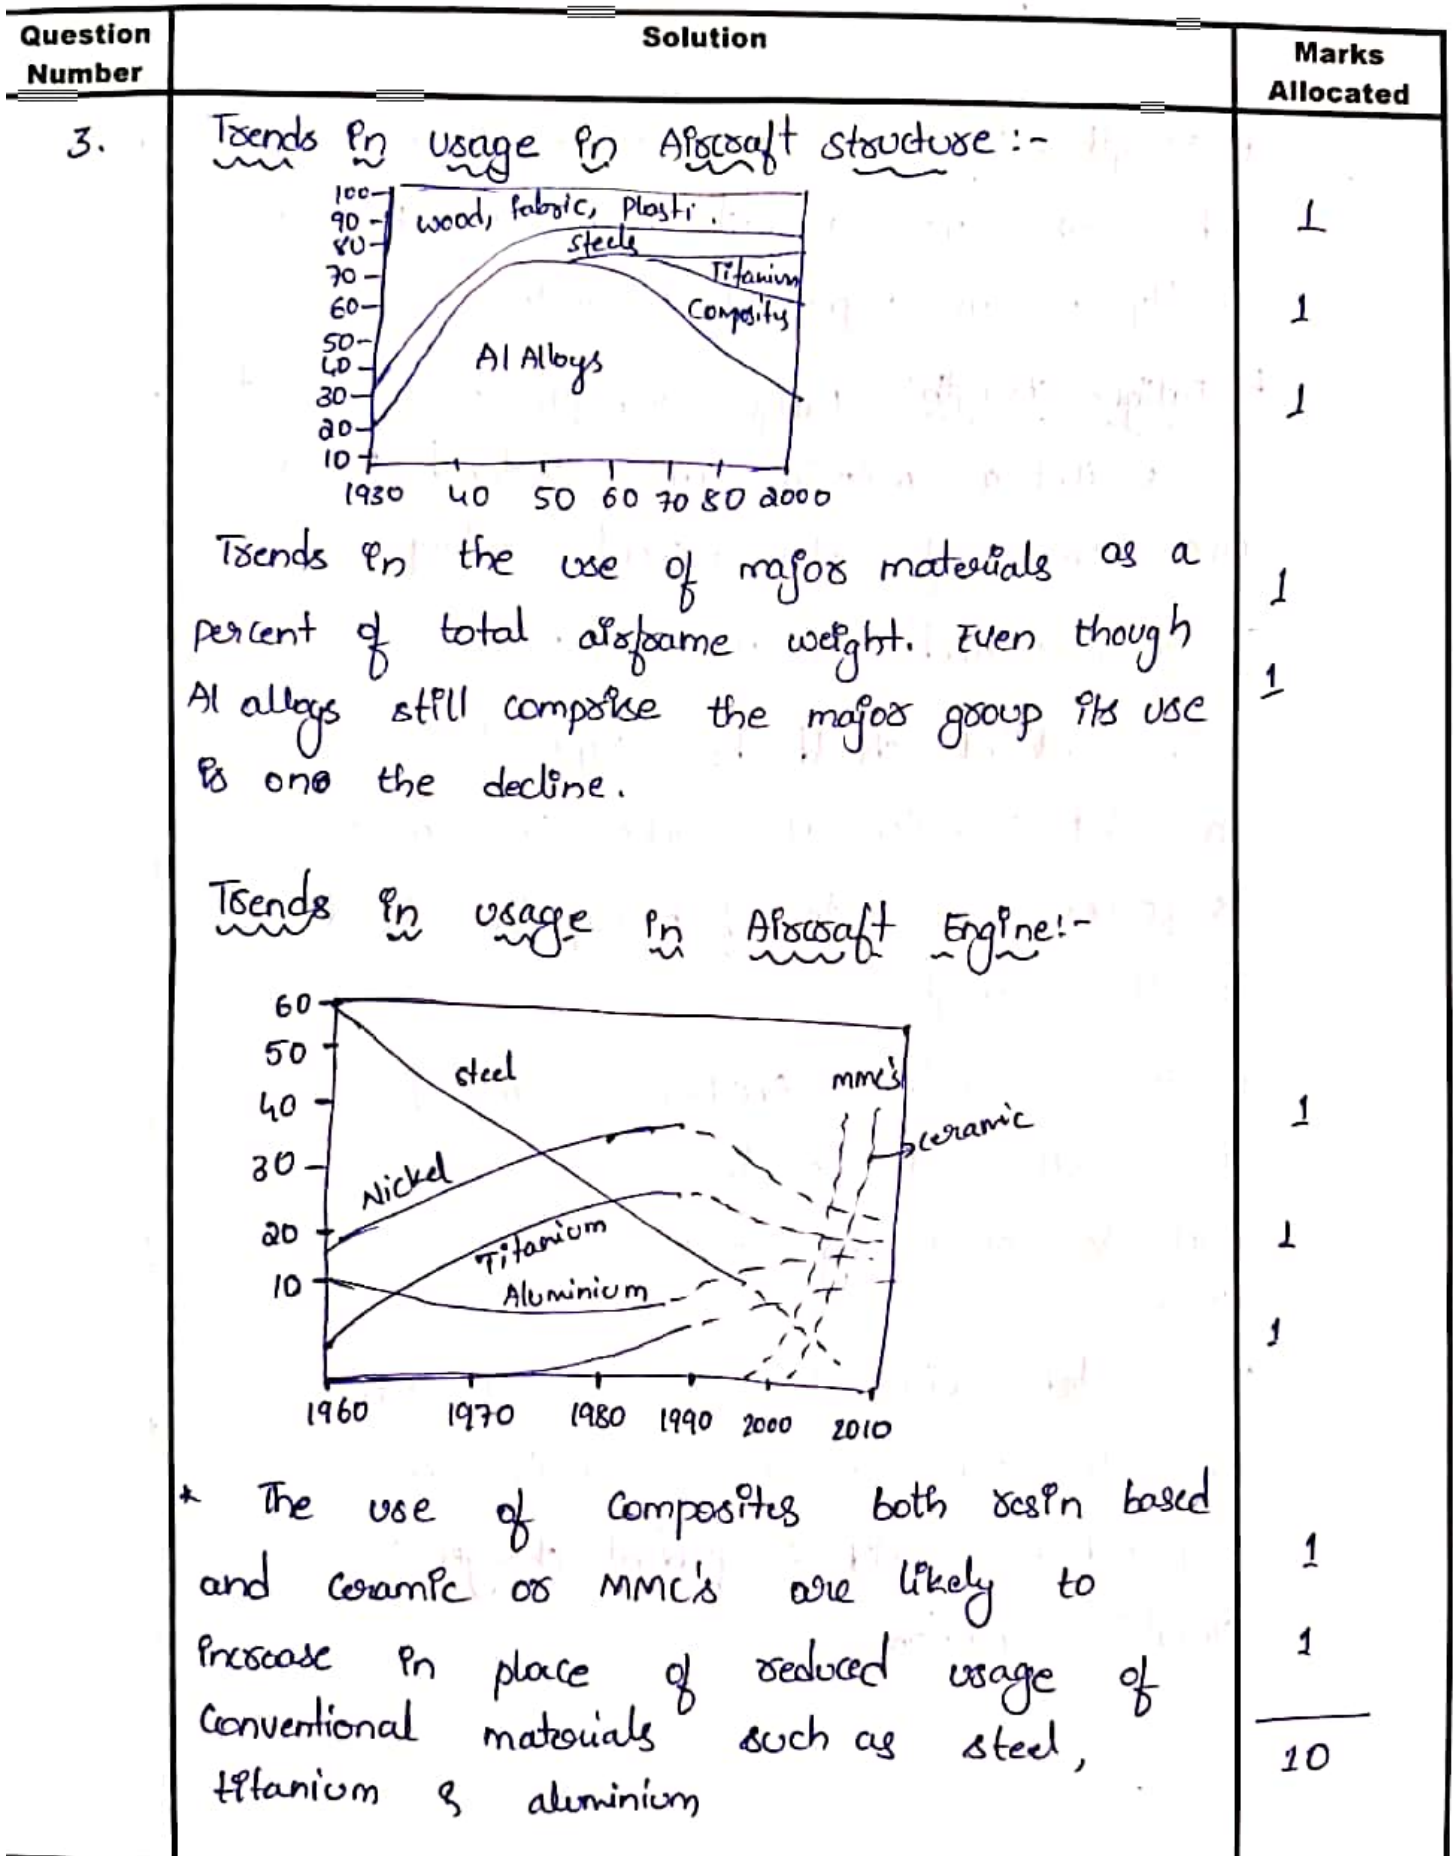 Question Number
Solution
Marks Allocated
3.
Trends in usage in Aircraft structure :-
1
100
90
80
70
60
50
40
30
20
10
wood, fabric, Plasti.
steels
Titanium
Composits
Al Alloys
1930 40 50 60 70 80 2000
1
1
Trends in the use of major materials as a
1
percent of total airframe weight. Even though
Al alloys still comprise the major group its use
1
is one the decline.
Trends in usage in Aircraft Engine:-
60
50
40
30
20
10
steel
mmc's
ceramic
Nickel
Titanium
Aluminium
1960 1970 1980 1990 2000 2010
1
1
1
* The use of composites both resin based
and ceramic or MMC's are likely to
1
increase in place of reduced usage of
1
Conventional materials such as steel,
10
titanium & aluminium